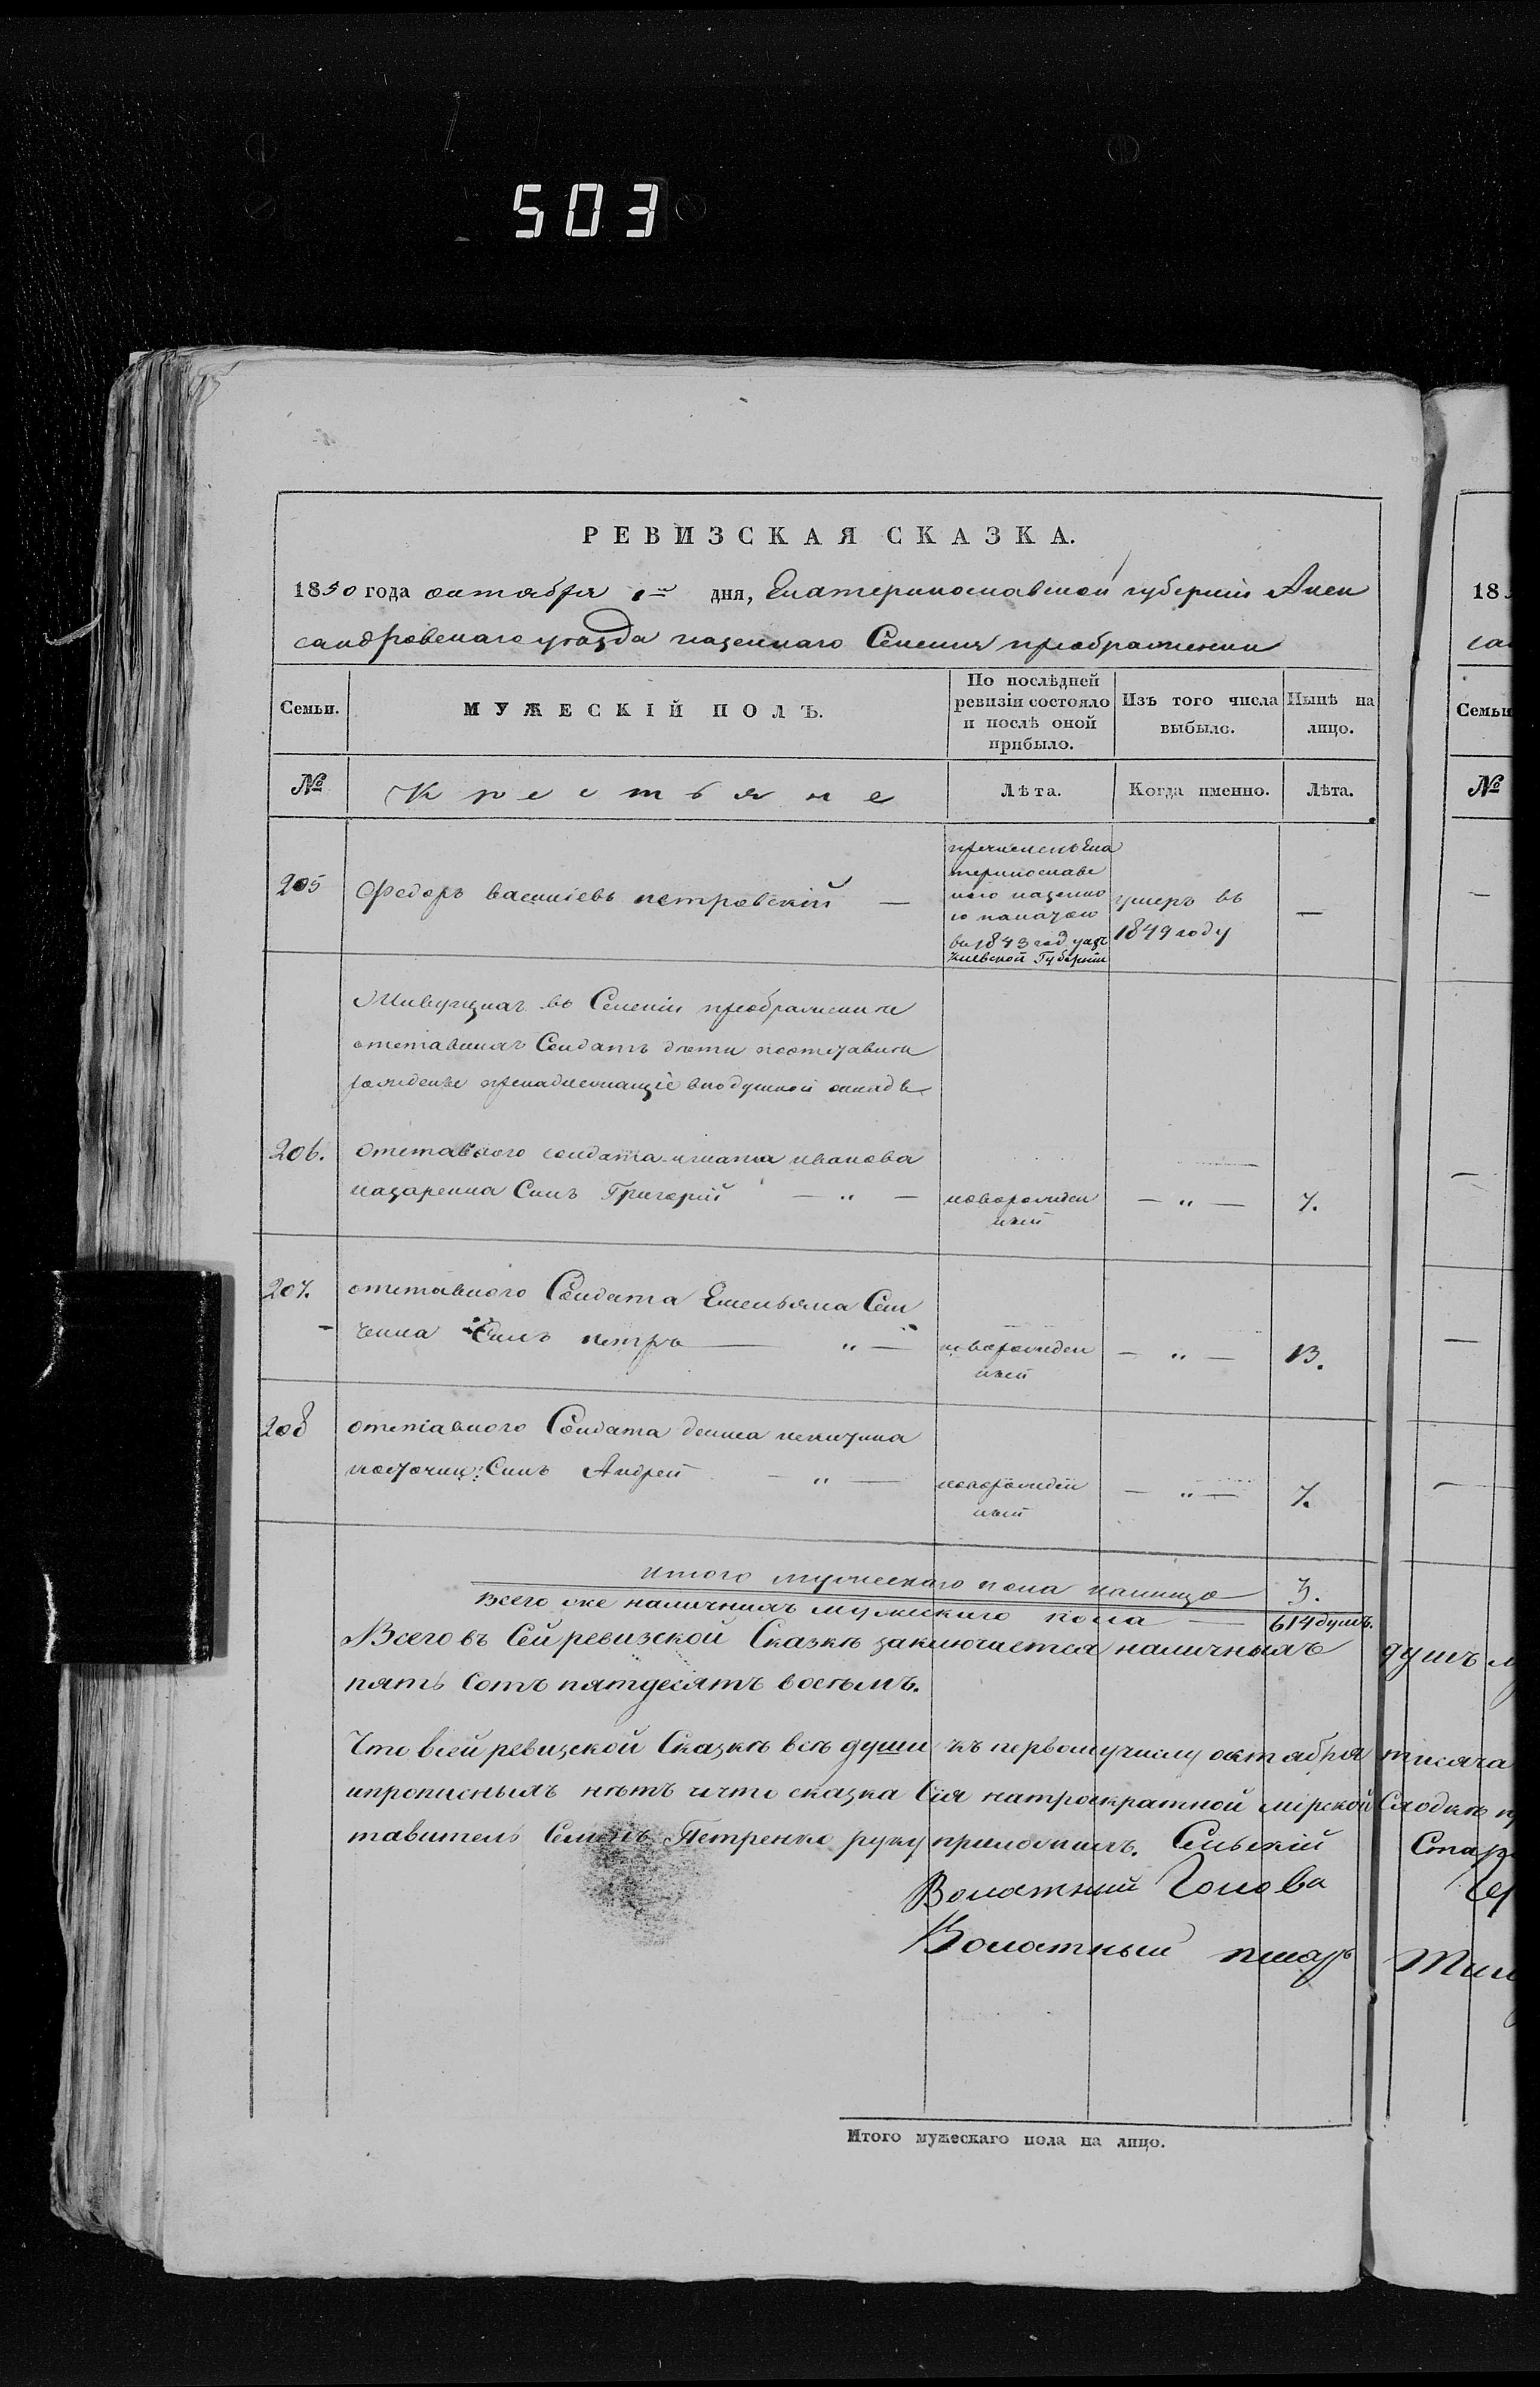 503
РЕВИЗСКАЯ СКАЗКА.
1850 года октября 1го дня, Екатеринославской губернiи Алек
сандровскаго уѣзда казеннаго Селенiя преображенки
Семьи.
МУЖЕСКІЙ ПОЛЪ.
По послѣдней ревизіи состояло и послѣ оной прибыло.
Изъ того числа выбыло.
Нынѣ на лицо.
№
Крестьяне
Лѣта.
Когда именно.
Лѣта.
205
Федоръ василіевъ петровскій —
причисленъ Ека
теринославс
кою казенно
ю палатою
въ 1843 год изъ
Кіевской Губерніи
умеръ въ
1849 году
—
Живущихъ въ Селеніи преображенке
отставныхъ Солдатъ дети поотставки
рожденые принадлежащіе вподушной окладъ
206.
отставного солдата игната иванова
назаренка Сынъ Григорій — " —
новорожден
ный
— " —
7.
207.
отставного Солдата Емельяна Сем
ченка Сынъ петръ — " —
новорожден
ный
— " —
13.
208
отставного Солдата
Сынъ Андрей — " —
новорожден
ный
— " —
7.
итого мужескаго пола налицо 3.
Всего же наличныхъ мужскаго пола — 614 душъ.
Всего въ Сей ревизской Сказкѣ заключается наличныхъ душъ м
пять сотъ пятдесятъ восемъ.
Что всей ревизской Сказкѣ всѣ души къ первому числу октября тисяча
ипрописныхъ нѣтъ ичто сказка Сія натроекратной мірской Сходкѣ
тавитель Семенъ Петренко руку приложилъ. Сельскій Стар
Волостный Голова
Волостный писарь
18
са
Семьи
№
Итого мужескаго пола на лицо.